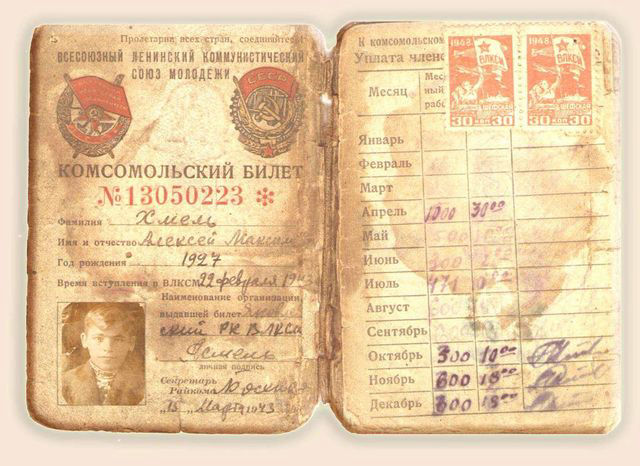 Пролетарии всех стран, соединяйтесь
ВСЕСОЮЗНЫЙ ЛЕНИНСКИЙ КОММУНИСТИЧЕСКИЙ
СОЮЗ МОЛОДЕЖИ
СССР
КОМСОМОЛЬСКИЙ БИЛЕТ
№13050223
Фамилия Хмель
Имя и отчество Алексей
Год рождения 1927
Время вступления в ВЛКСМ 22 февраля 1943
Наименование организации,
выдавшей билет
ский РК ВЛКСМ
личная подпись
Секретарь
Райкома
"15" Марта 1943
К комсомольском
Уплата член
Месяц
Мес
ный
рабо
1948 ВЛКСМ ШЕФСКАЯ 30 коп 30
1948 ВЛКСМ ШЕФСКАЯ 30 коп 30
Январь
Февраль
Март
Апрель 1000 30 00
Май
Июнь
Июль
Август
Сентябрь
Октябрь 300 10 00
Ноябрь 600 18 00
Декабрь 600 18 00